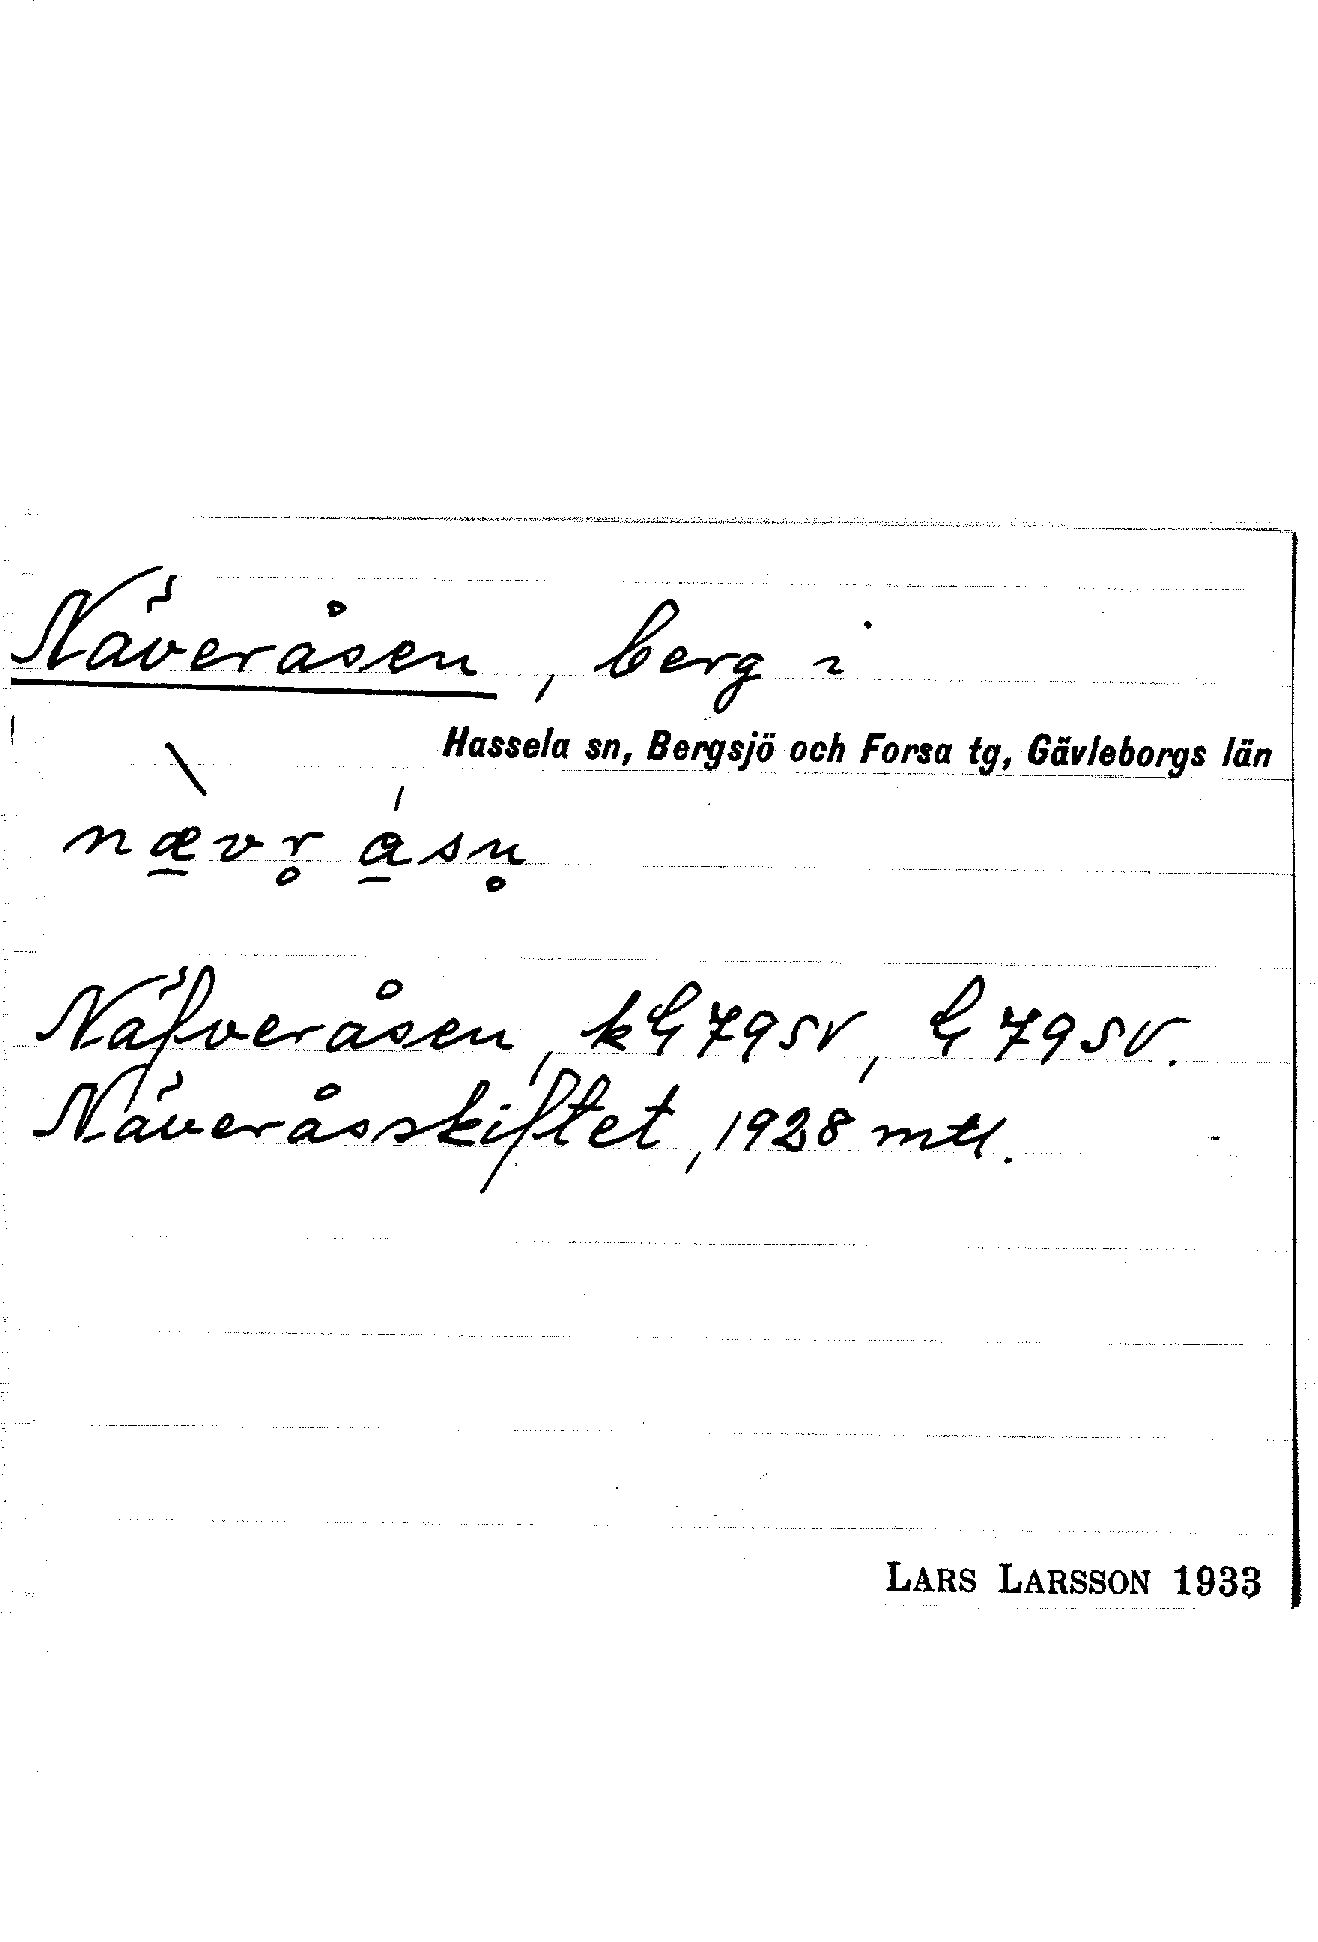 Näveråsen, berg i
Hassela sn, Bergsjö och Forsa tg, Gävleborgs län
nævr̥ åsn̥
Näfveråsen, kG 79 SV, G 79 SV.
Näveråsskiftet, 1928 mtl.
LARS LARSSON 1933